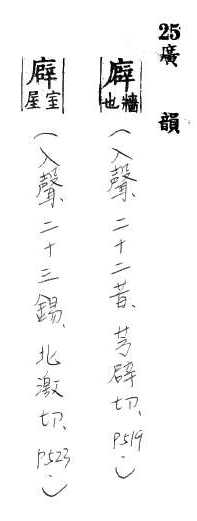 25廣韻
廦牆也(入聲、二十二昔、芳辟切、P519。)
廦室屋(入聲、二十三錫、北激切、P523。)